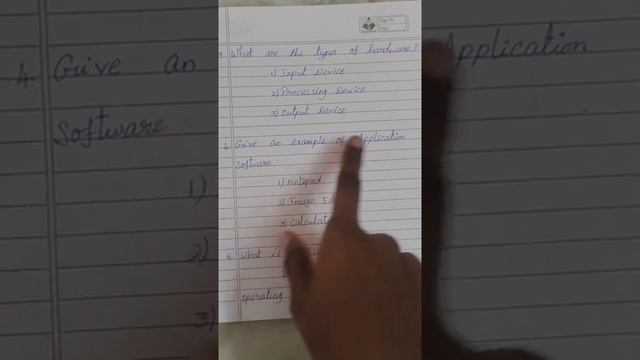 What are the types of hardware?
1) Input Device
2) Processing Device
3) Output Device
4. Give an example of Application
Software
1) Notepad
2) Image
3)
5. What is
operating